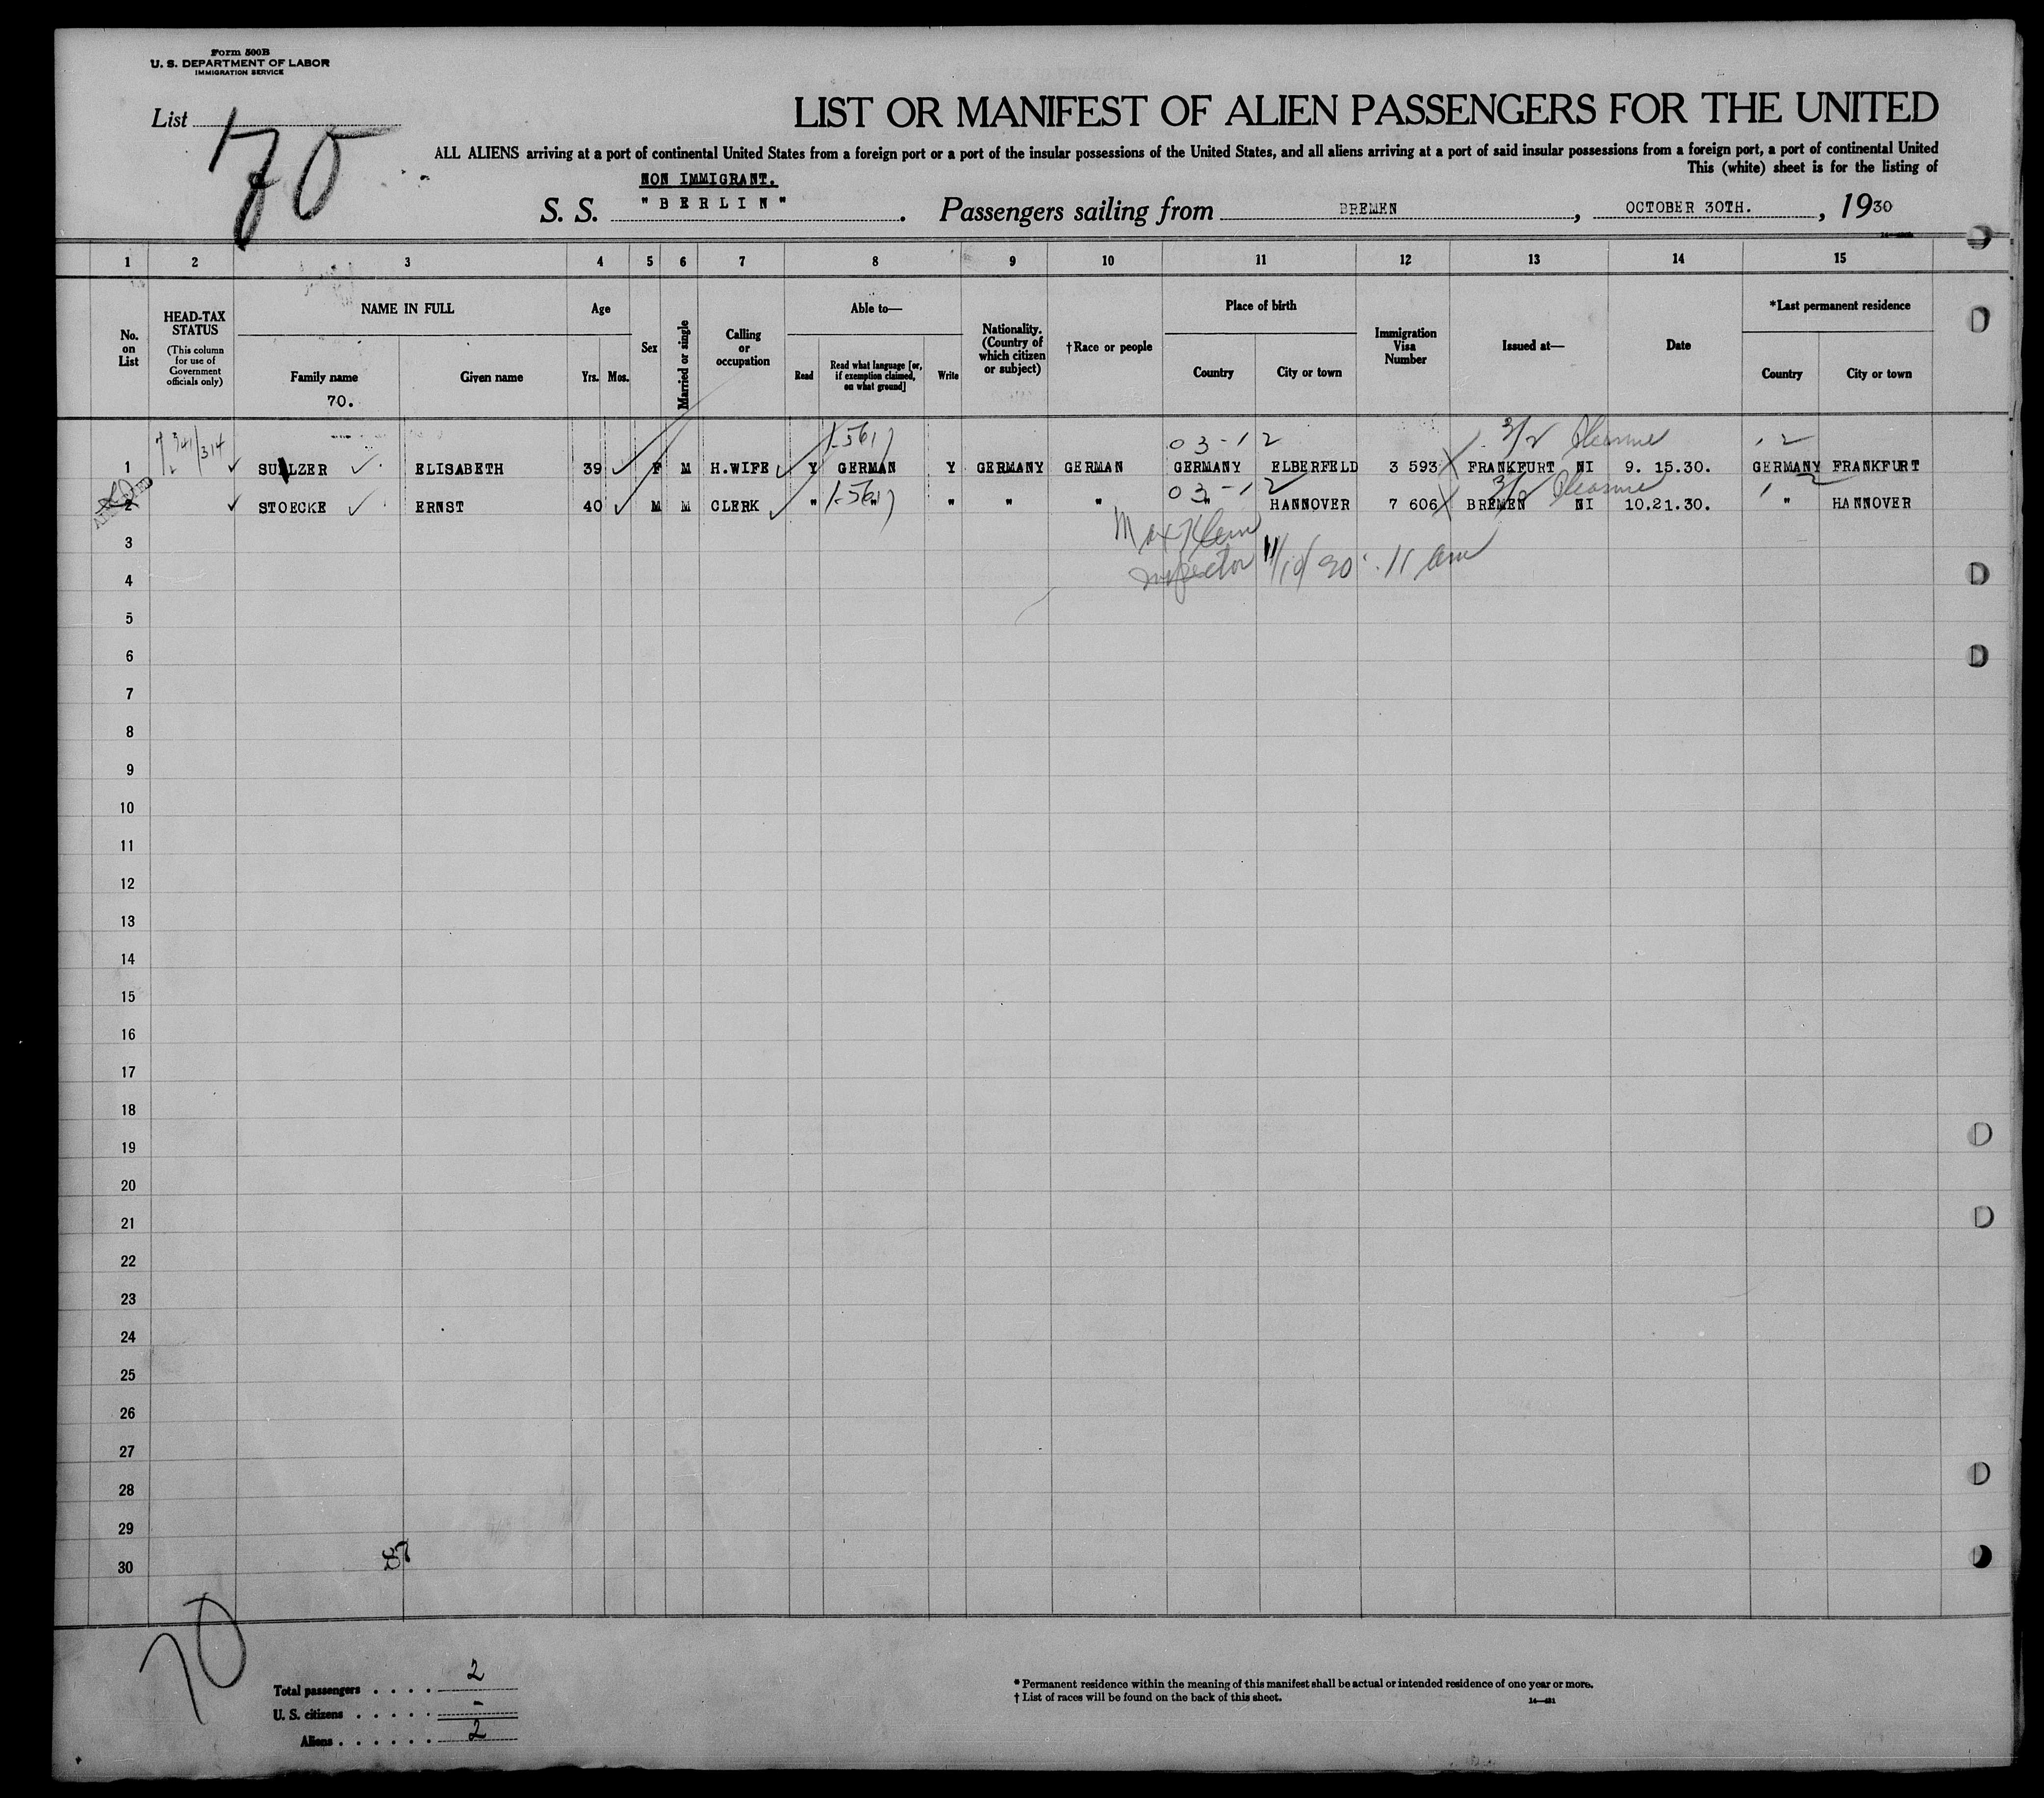 Form 500B
U. S. DEPARTMENT OF LABOR
IMMIGRATION SERVICE
List 70
LIST OR MANIFEST OF ALIEN PASSENGERS FOR THE UNITED
ALL ALIENS arriving at a port of continental United States from a foreign port or a port of the insular possessions of the United States, and all aliens arriving at a port of said insular possessions from a foreign port, a port of continental United
This (white) sheet is for the listing of
NON IMMIGRANT.
S. S. "BERLIN". Passengers sailing from BREMEN, OCTOBER 30TH., 1930
1 2 3 4 5 6 7 8 9 10 11 12 13 14 15
No. on List
HEAD-TAX STATUS
(This column for use of Government officials only)
NAME IN FULL
Family name
70.
Given name
Age
Yrs. Mos.
Sex
Married or single
Calling or occupation
Able to—
Read
Read what language [or, if exemption claimed, on what ground]
Write
Nationality. (Country of which citizen or subject)
†Race or people
Place of birth
Country
City or town
Immigration Visa Number
Issued at—
Date
*Last permanent residence
Country
City or town
341/314
03-12
1 SULZER ELISABETH 39 F M H.WIFE Y GERMAN Y GERMANY GERMAN GERMANY ELBERFELD 3 593 FRANKFURT NI 9. 15.30. GERMANY FRANKFURT
03-12
2 STOECKE ERNST 40 M M CLERK " " " " " " HANNOVER 7 606 BREMEN NI 10.21.30. " HANNOVER
3
Inspector 11/10/30 11 am
4
5
6
7
8
9
10
11
12
13
14
15
16
17
18
19
20
21
22
23
24
25
26
27
28
29
30
70
Total passengers . . . . 2
U. S. citizens . . . . . -
Aliens . . . . . . 2
* Permanent residence within the meaning of this manifest shall be actual or intended residence of one year or more.
† List of races will be found on the back of this sheet.